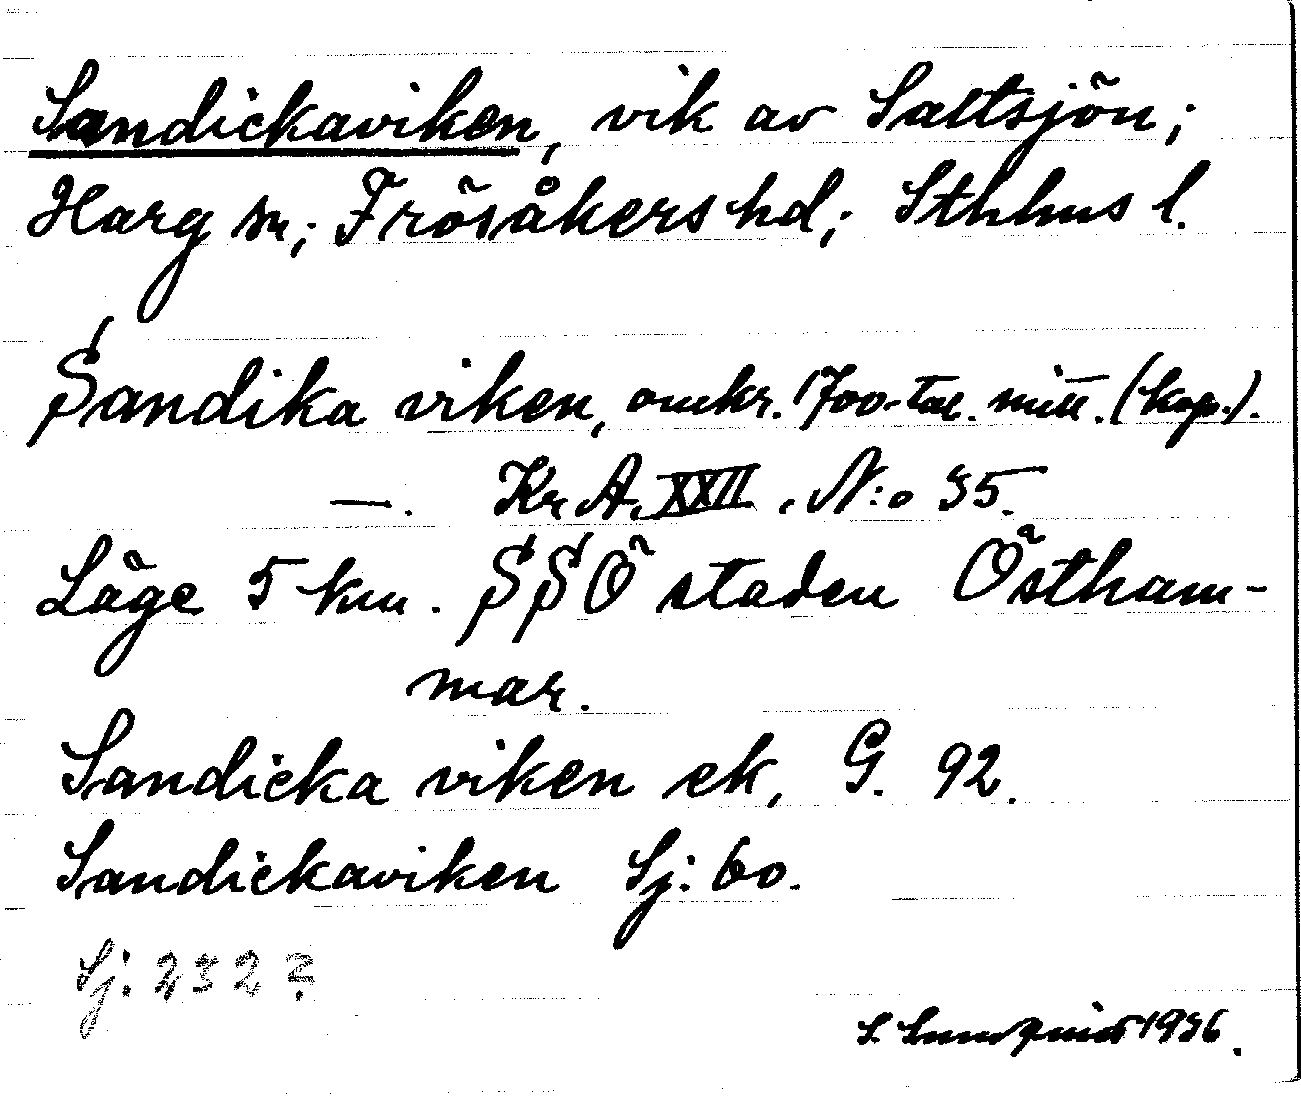 Sandickaviken, vik av Saltsjön;
Harg sn; Frösåkers hd; Sthlms l.
Sandika viken, omkr. 1700-tal. mitt. (kop.).
—. Kr A. XXII. N:o 35.
Läge 5 km. SSÖ staden Östham-
mar.
Sandicka viken ek, G. 92.
Sandickaviken Sj: 60.
Sj: 232?
S. 1936.